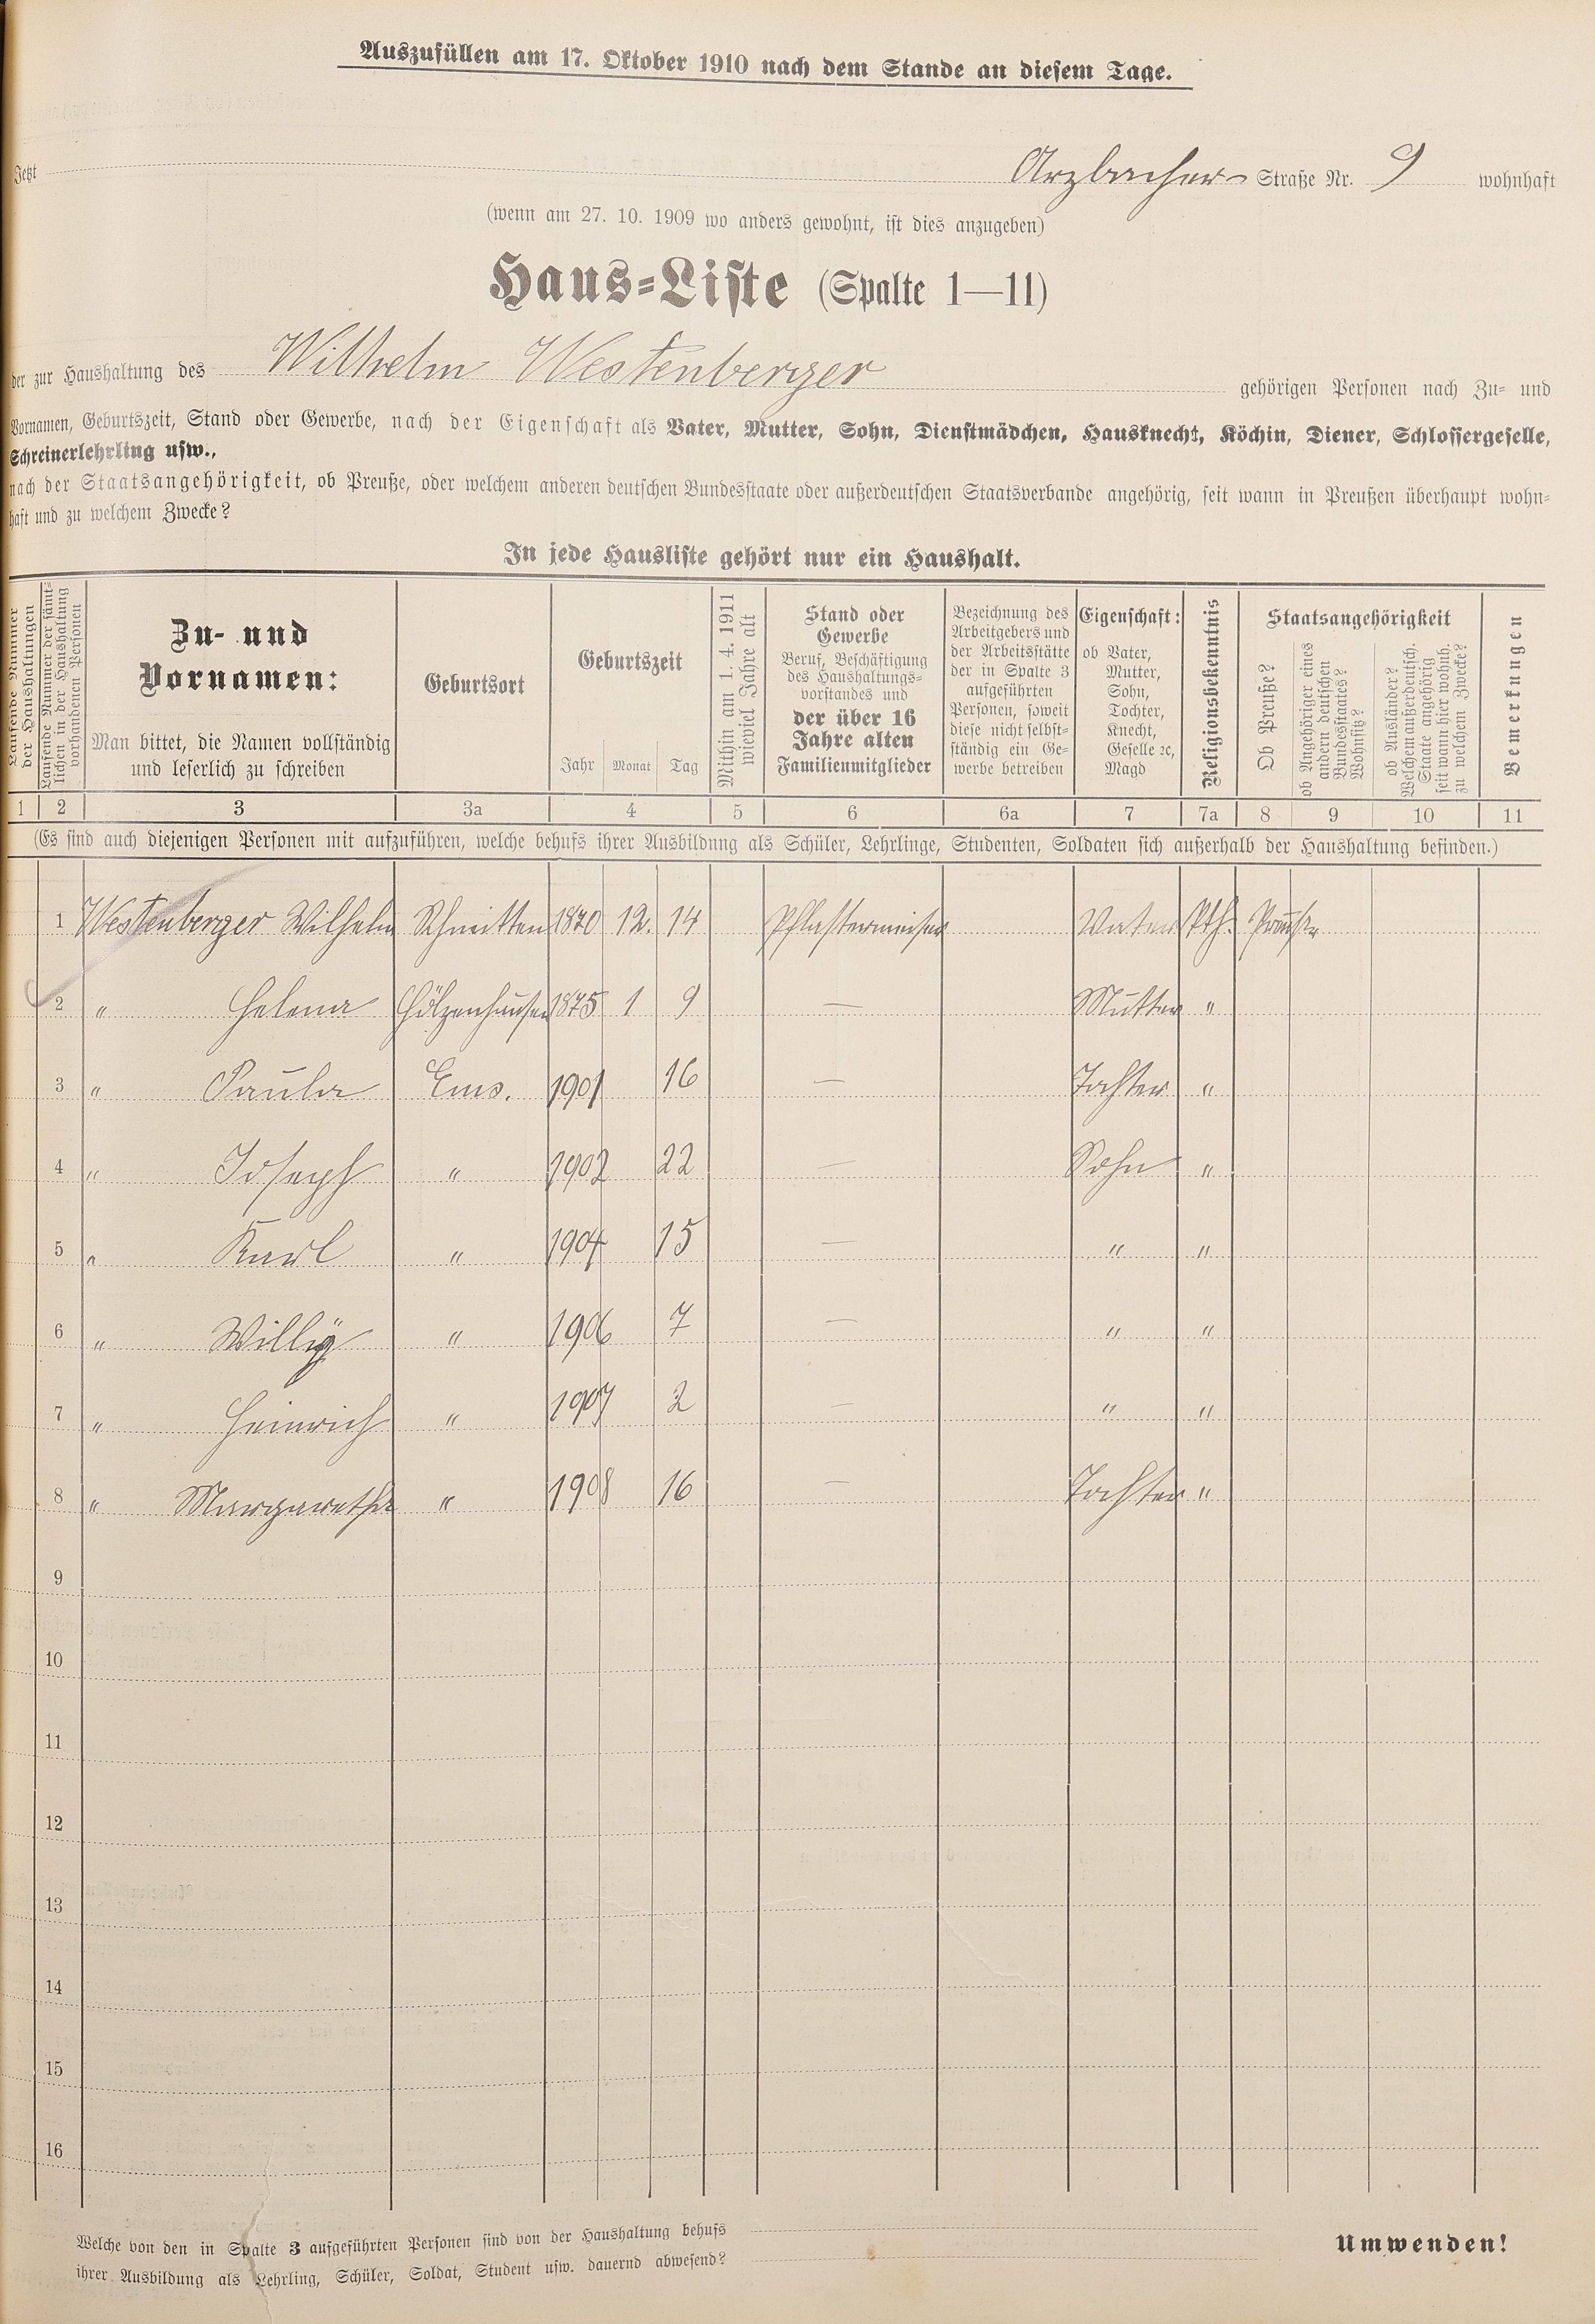 Auszufüllen am 17. Oktober 1910 nach dem Stande an diesem Tage.
Jetzt Arzbacher Straße Nr. 9 wohnhaft
(wenn am 27. 10. 1909 wo anders gewohnt, ist dies anzugeben)
Haus-Liste (Spalte 1—11)
der zur Haushaltung des Wilhelm Westenberger gehörigen Personen nach Zu- und
Vornamen, Geburtszeit, Stand oder Gewerbe, nach der Eigenschaft als Vater, Mutter, Sohn, Dienstmädchen, Hausknecht, Köchin, Diener, Schlossergeselle,
Schreinerlehrling usw.,
nach der Staatsangehörigkeit, ob Preuße, oder welchem anderen deutschen Bundesstaate oder außerdeutschen Staatsverbande angehörig, seit wann in Preußen überhaupt wohn-
haft und zu welchem Zwecke?
In jede Hausliste gehört nur ein Haushalt.
Laufende Nummer
der Haushaltungen
Laufende Nummer der sämt-
lichen in der Haushaltung
vorhandenen Personen
Zu- und
Vornamen:
Man bittet, die Namen vollständig
und leserlich zu schreiben
Geburtsort
Geburtszeit
Jahr Monat Tag
Mithin am 1. 4. 1911
wieviel Jahre alt
Stand oder
Gewerbe
Beruf, Beschäftigung
des Haushaltungs-
vorstandes und
der über 16
Jahre alten
Familienmitglieder
Bezeichnung des
Arbeitgebers und
der Arbeitsstätte
der in Spalte 3
aufgeführten
Personen, soweit
diese nicht selbst-
ständig ein Ge-
werbe betreiben
Eigenschaft:
ob Vater,
Mutter,
Sohn,
Tochter,
Knecht,
Geselle ꝛc,
Magd
Religionsbekenntnis
Staatsangehörigkeit
Ob Preuße?
ob Angehöriger eines
andern deutschen
Bundesstaates?
Wohnsitz?
ob Ausländer?
Welchem außerdeutsch.
Staate angehörig
seit wann hier wohnh.
zu welchem Zwecke?
Bemerkungen
1 2 3 3a 4 5 6 6a 7 7a 8 9 10 11
(Es sind auch diejenigen Personen mit aufzuführen, welche behufs ihrer Ausbildung als Schüler, Lehrlinge, Studenten, Soldaten sich außerhalb der Haushaltung befinden.)
1 Westenberger Wilhelm Schmitten 1870 12. 14 Pflastermeister Vater Kth. Preuße
2 " Helena Hölzenhausen 1875 1 9 — Mutter "
3 " Paula Ems. 1901 16 — Tochter "
4 " Joseph " 1902 22 — Sohn "
5 " Karl " 1904 15 — " "
6 " Willÿ " 1906 7 — " "
7 " Heinrich " 1907 2 — " "
8 " Margaretha " 1908 16 — Tochter "
9
10
11
12
13
14
15
16
Welche von den in Spalte 3 aufgeführten Personen sind von der Haushaltung behufs
ihrer Ausbildung als Lehrling, Schüler, Soldat, Student usw. dauernd abwesend?
Umwenden!